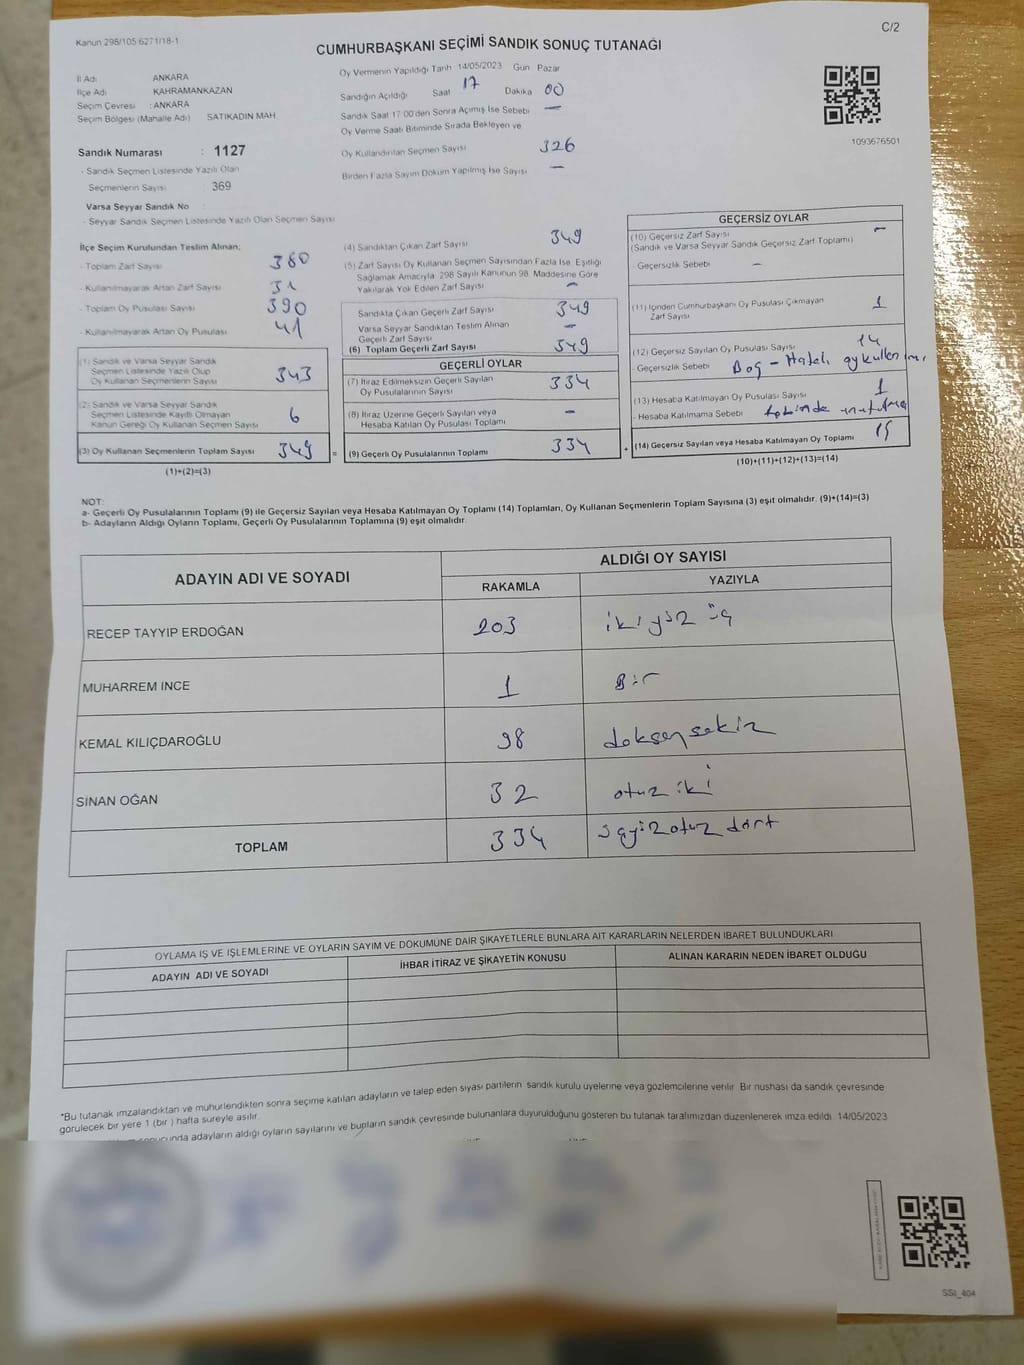 Kanun 298/105 6271/18-1
C/2
CUMHURBAŞKANI SEÇİMİ SANDIK SONUÇ TUTANAĞI
İl Adı ANKARA
İlçe Adı KAHRAMANKAZAN
Seçim Çevresi : ANKARA
Seçim Bölgesi (Mahalle Adı) SATIKADIN MAH.
Sandık Numarası : 1127
- Sandık Seçmen Listesinde Yazılı Olan
Seçmenlerin Sayısı : 369
Varsa Seyyar Sandık No
- Seyyar Sandık Seçmen Listesinde Yazılı Olan Seçmen Sayısı
Oy Vermenin Yapıldığı Tarih 14/05/2023 Gün Pazar
Sandığın Açıldığı Saat 17 Dakika 00
Sandık Saat 17:00'den Sonra Açımış İse Sebebi —
Oy Verme Saati Bitiminde Sırada Bekleyen ve
Oy Kullandırılan Seçmen Sayısı 326
Birden Fazla Sayım Döküm Yapılmış İse Sayısı —
1093676501
İlçe Seçim Kurulundan Teslim Alınan;
- Toplam Zarf Sayısı 380
- Kullanılmayarak Artan Zarf Sayısı 31
- Toplam Oy Pusulası Sayısı 390
- Kullanılmayarak Artan Oy Pusulası 41
(1) Sandık ve Varsa Seyyar Sandık
Seçmen Listesinde Yazılı Olup
Oy Kullanan Seçmenlerin Sayısı 343
(2) Sandık ve Varsa Seyyar Sandık
Seçmen Listesinde Kayıtlı Olmayan
Kanun Gereği Oy Kullanan Seçmen Sayısı 6
(3) Oy Kullanan Seçmenlerin Toplam Sayısı 349 =
(1)+(2)=(3)
(4) Sandıktan Çıkan Zarf Sayısı 349
(5) Zarf Sayısı Oy Kullanan Seçmen Sayısından Fazla İse, Eşitliği
Sağlamak Amacıyla, 298 Sayılı Kanunun 98. Maddesine Göre
Yakılarak Yok Edilen Zarf Sayısı —
Sandıkta Çıkan Geçerli Zarf Sayısı 349
Varsa Seyyar Sandıktan Teslim Alınan
Geçerli Zarf Sayısı —
(6) Toplam Geçerli Zarf Sayısı 349
GEÇERLİ OYLAR
(7) İtiraz Edilmeksizin Geçerli Sayılan
Oy Pusulalarının Sayısı 334
(8) İtiraz Üzerine Geçerli Sayılan veya
Hesaba Katılan Oy Pusulası Toplamı —
(9) Geçerli Oy Pusulalarının Toplamı 334 +
GEÇERSİZ OYLAR
(10) Geçersiz Zarf Sayısı —
(Sandık ve Varsa Seyyar Sandık Geçersiz Zarf Toplamı)
- Geçersizlik Sebebi —
(11) İçinden Cumhurbaşkanı Oy Pusulası Çıkmayan
Zarf Sayısı 1
(12) Geçersiz Sayılan Oy Pusulası Sayısı 14
- Geçersizlik Sebebi Boş - Hatalı oy kullanımı
(13) Hesaba Katılmayan Oy Pusulası Sayısı 1
- Hesaba Katılmama Sebebi
(14) Geçersiz Sayılan veya Hesaba Katılmayan Oy Toplamı 15
(10)+(11)+(12)+(13)=(14)
NOT:
a- Geçerli Oy Pusulalarının Toplamı (9) ile Geçersiz Sayılan veya Hesaba Katılmayan Oy Toplamı (14) Toplamları, Oy Kullanan Seçmenlerin Toplam Sayısına (3) eşit olmalıdır. (9)+(14)=(3)
b- Adayların Aldığı Oyların Toplamı, Geçerli Oy Pusulalarının Toplamına (9) eşit olmalıdır.
ADAYIN ADI VE SOYADI ALDIĞI OY SAYISI
RAKAMLA YAZIYLA
RECEP TAYYIP ERDOĞAN 203 ikiyüz üç
MUHARREM İNCE 1 Bir
KEMAL KILIÇDAROĞLU 98 doksansekiz
SİNAN OĞAN 32 otuz iki
TOPLAM 334 3 yüzotuz dört
OYLAMA İŞ VE İŞLEMLERİNE VE OYLARIN SAYIM VE DÖKÜMÜNE DAİR ŞİKAYETLERLE BUNLARA AİT KARARLARIN NELERDEN İBARET BULUNDUKLARI
ADAYIN ADI VE SOYADI İHBAR İTİRAZ VE ŞİKAYETİN KONUSU ALINAN KARARIN NEDEN İBARET OLDUĞU
*Bu tutanak imzalandıktan ve mühürlendikten sonra seçime katılan adayların ve talep eden siyasi partilerin sandık kurulu üyelerine veya gözlemcilerine verilir. Bir nüshası da sandık çevresinde
görülecek bir yere 1 (bir ) hafta süreyle asılır.
adayların aldığı oyların sayılarını ve bunların sandık çevresinde bulunanlara duyurulduğunu gösteren bu tutanak tarafımızdan düzenlenerek imza edildi. 14/05/2023
SSI_404